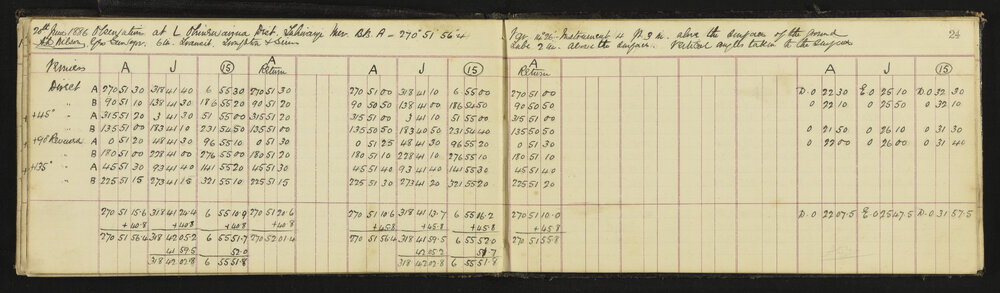 20th June 1886 Observations at L Ohinewairua Dist. Mer. Bk. A = 270° 51' 56"·4
Geo. Surveyor. 6 in. Transit Troughton & Simms
Instrument 4 ft 9 in. above the surface of the ground
above the surface. Vertical angles taken to the surface
24
Verniers A J (15) A Return A J (15) A Return A J (15)
Direct A 270 51 30 318 41 40 6 55 30 270 51 30 270 51 00 318 41 10 6 55 00 270 51 00 D. 0 22 30 E. 0 25 10 D. 0 32 30
" B 90 51 10 138 41 30 186 55 20 90 51 30 90 50 50 138 41 00 186 54 50 90 50 50 0 22 10 0 25 50 0 32 10
+45° A 315 51 20 3 41 30 51 55 00 315 51 20 315 51 00 3 41 10 51 55 00 315 51 00
" B 135 51 00 183 41 10 231 54 50 135 51 00 135 50 50 183 40 50 231 54 40 135 50 50 0 21 50 0 26 10 0 31 30
+90 Reversed A 0 51 20 48 41 30 96 55 10 0 51 30 0 51 25 48 41 30 96 55 20 0 51 30 0 22 00 0 26 00 0 31 40
" B 180 51 00 228 41 00 276 55 00 180 51 20 180 51 10 228 41 10 276 55 10 180 51 10
+135° A 45 51 30 93 41 40 141 55 20 45 51 30 45 51 40 93 41 40 141 55 30 45 51 40
" B 225 51 15 273 41 15 321 55 10 225 51 15 225 51 30 273 41 20 321 55 20 225 51 20
270 51 15·6 318 41 24·4 6 55 10·9 270 51 20·6 270 51 10·6 318 41 13·7 6 55 06·2 270 51 10·0 D. 0 22 07·5 E. 0 25 47·5 D. 0 31 57·5
+40·8 +40·8 +40·8 +40·8 +45·8 +45·8 +45·8 +45·8
270 51 56·4 318 42 05·2 6 55 51·7 270 52 01·4 270 51 56·4 318 41 59·5 6 55 52·0 270 51 55·8
41 59·5 52·0 42 05·2 51·7
318 42 02·8 6 55 51·8 318 42 02·8 6 55 51·8